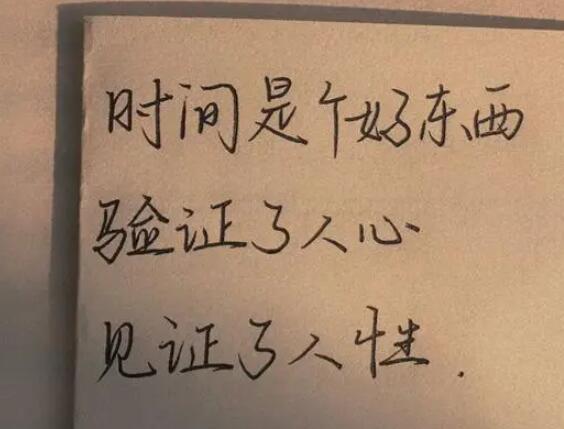 时间是个好东西
验证了人心
见证了人性.